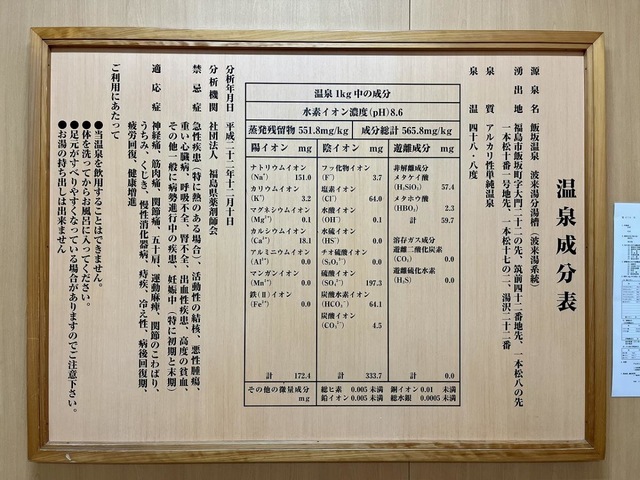 温泉成分表
源泉名 飯坂温泉 波来湯分湯槽（波来湯系統）
湧出地 福島市飯坂町字大門二十一の先、筑前四十二番地先、一本松八の先
一本松十二番一号地先、一本松十七の二、湯沢二十二番
泉質 アルカリ性単純温泉
泉温 四十八・八度
温泉1kg中の成分
水素イオン濃度(pH)8.6
蒸発残留物 551.8mg/kg 成分総計 565.8mg/kg
陽イオン mg 陰イオン mg 遊離成分 mg
ナトリウムイオン
(Na⁺) 151.0
カリウムイオン
(K⁺) 3.2
マグネシウムイオン
(Mg²⁺) 0.1
カルシウムイオン
(Ca²⁺) 18.1
アルミニウムイオン
(Al³⁺) 0.0
マンガンイオン
(Mn²⁺) 0.0
鉄(Ⅱ)イオン
(Fe²⁺) 0.0
計 172.4
フッ化物イオン
(F⁻) 3.7
塩素イオン
(Cl⁻) 64.0
水酸イオン
(OH⁻) 0.1
水硫イオン
(HS⁻) 0.0
チオ硫酸イオン
(S₂O₃²⁻) 0.0
硫酸イオン
(SO₄²⁻) 197.3
炭酸水素イオン
(HCO₃⁻) 64.1
炭酸イオン
(CO₃²⁻) 4.5
計 333.7
非解離成分
メタケイ酸
(H₂SiO₃) 57.4
メタホウ酸
(HBO₂) 2.3
計 59.7
溶存ガス成分
遊離二酸化炭素
(CO₂) 0.0
遊離硫化水素
(H₂S) 0.0
計 0.0
その他の微量成分 mg
総ヒ素 0.005 未満 銅イオン 0.01 未満
鉛イオン 0.005 未満 総水銀 0.0005 未満
分析年月日 平成二十二年十二月十日
分析機関 社団法人 福島県薬剤師会
禁忌症 急性疾患（特に熱のある場合）、活動性の結核、悪性腫瘍、
重い心臓病、呼吸不全、腎不全、出血性疾患、高度の貧血、
その他一般に病勢進行中の疾患、妊娠中（特に初期と末期）
適応症 神経痛、筋肉痛、関節痛、五十肩、運動麻痺、関節のこわばり、
うちみ、くじき、慢性消化器病、痔疾、冷え性、病後回復期、
疲労回復、健康増進
ご利用にあたって
●当温泉を飲用することはできません。
●体を洗ってからお風呂に入ってください。
●足元がすべりやすくなっている場合がありますのでご注意下さい。
●お湯の持ち出しは出来ません